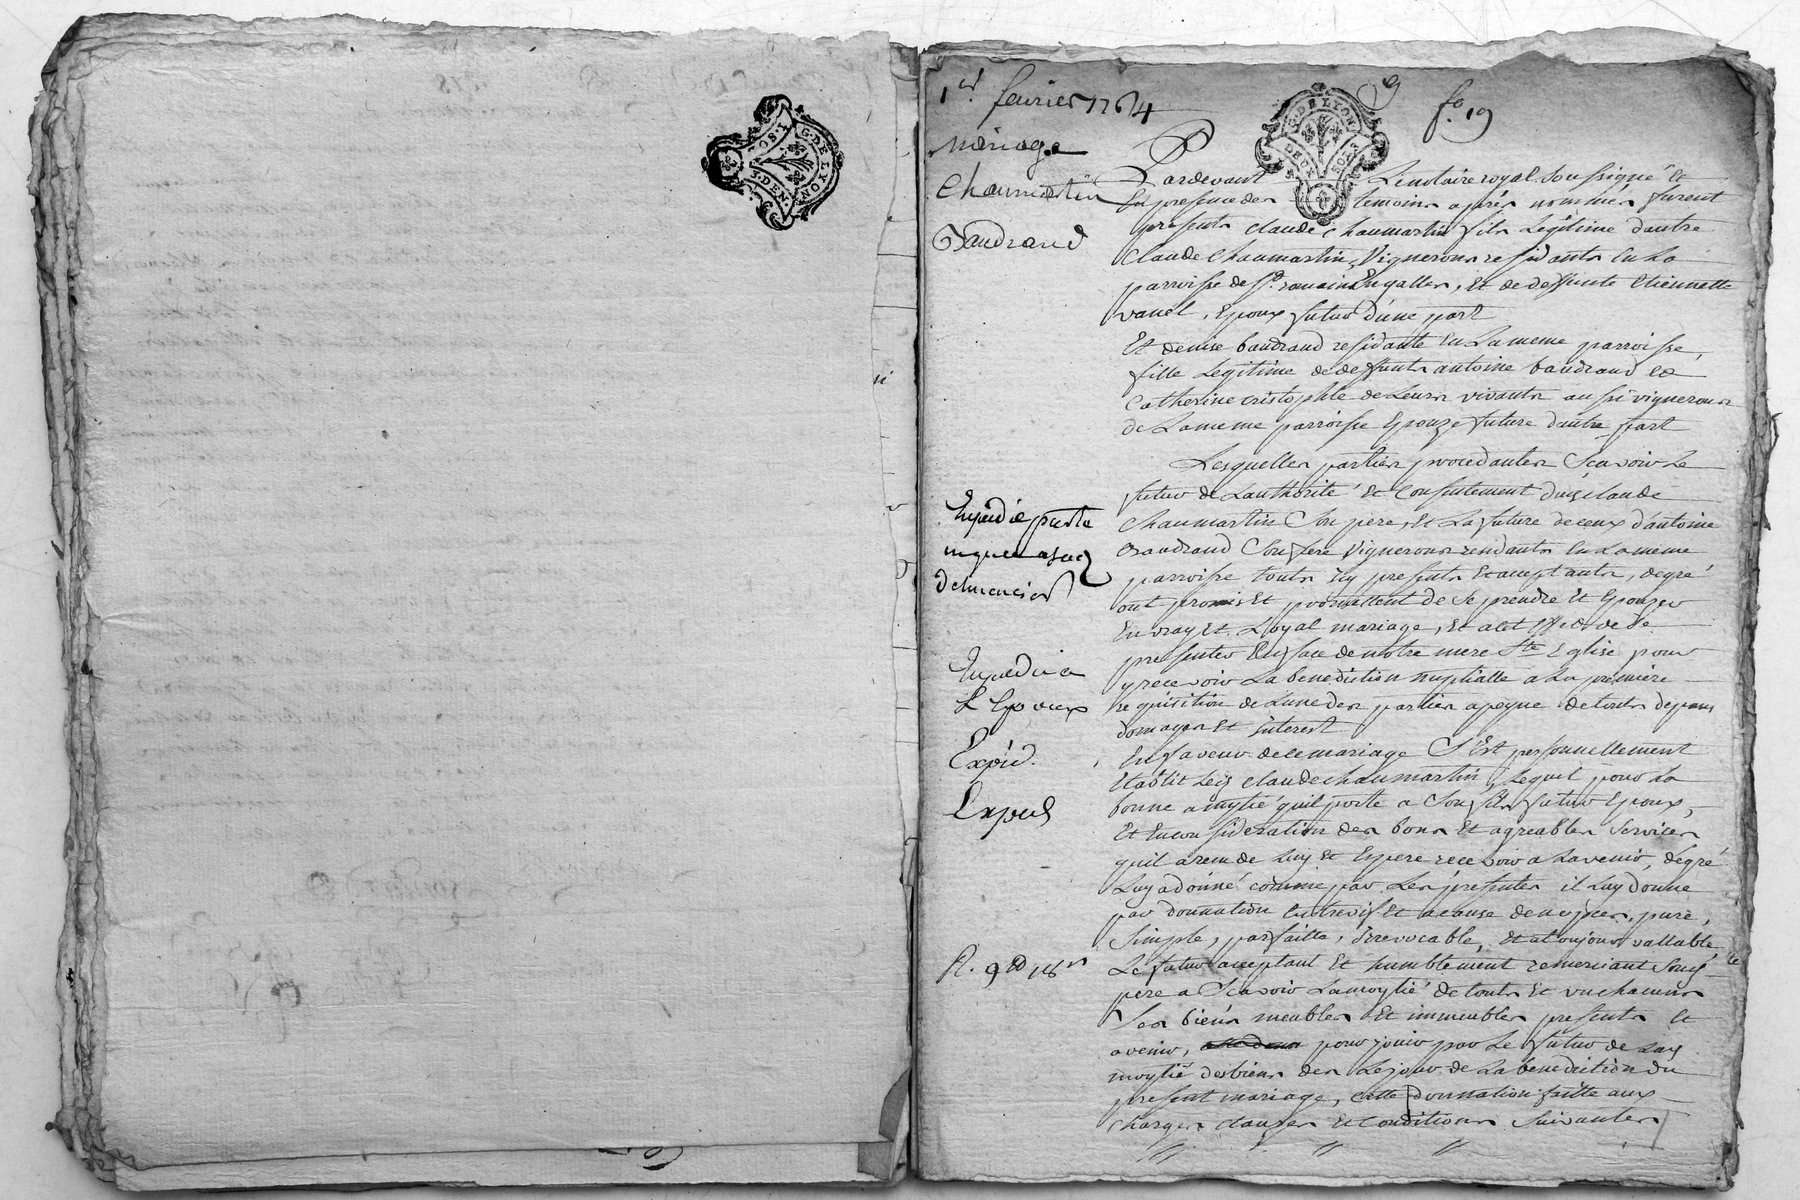 G. DE LYON
3. DEN.
1er. fevrier 1764
mariage
Chaumartin
Baudrand
G. DE LYON
DEUX SOLS
fo. 19
Pardevant Le notaire royal Soussigné et
En presence des temoins après nommés furent
presents claude chaumartin fils Légitime d'autre
claude chaumartin, Vignerons residants En La
parroisse de St. romain En galler, Et de deffunte Etiennette
vanel, Epoux futur d'une part
Et denise baudrand residante En La meme parroisse,
fille Legitime de deffunts antoine baudrand et
Catherine cristophle de Leurs vivants aussi vignerons
de La meme parroisse Epouze future d'autre part
Lesquelles parties procedantes Scavoir Le
futur de L'authorité Et Consentement dud. claude
chaumartin Son pere, Et La future de ceux d'antoine
Baudrand Son frere Vignerons residants En La meme
parroisse touts icy presents Et acceptants, de gré
ont promis Et promettent de Se prendre Et Epouzer
En vray Et Loyal mariage, Et a cet Effet de Se
presenter En face de notre mere Ste Eglise pour
y recevoir La benediction nuptialle a La premiere
requisition de L'une des parties a peyne de touts depens
domages Et interest
En faveur de ce mariage S'Est personnellement
Etablit Led. claude chaumartin, Lequel pour La
bonne amytié qu'il porte a Son fils futur Epoux,
Et En consideration des bons Et agreables Services
qu'il a recu de Luy Et Espere recevoir a L'avenir, de gré
Luy a donné comme par Les presentes il Luy donne
par donnation Entrevif Et a cause de nopces, pure,
Simple, parfaitte, irrevocable, Et a toujours vallable
Le futur acceptant Et humblement remerciant Sond.
pere a Scavoir La moytié de touts Et un chacuns
Ses biens meubles Et immeubles presents Et
avenir, pour jouir par Le futur de Lad.
moytié des biens des Le jour de La benediction du
present mariage, cette donnation faitte aux
charges clauses Et Conditions Suivantes
Expedié
L'Epoux
Expéd.
Exped